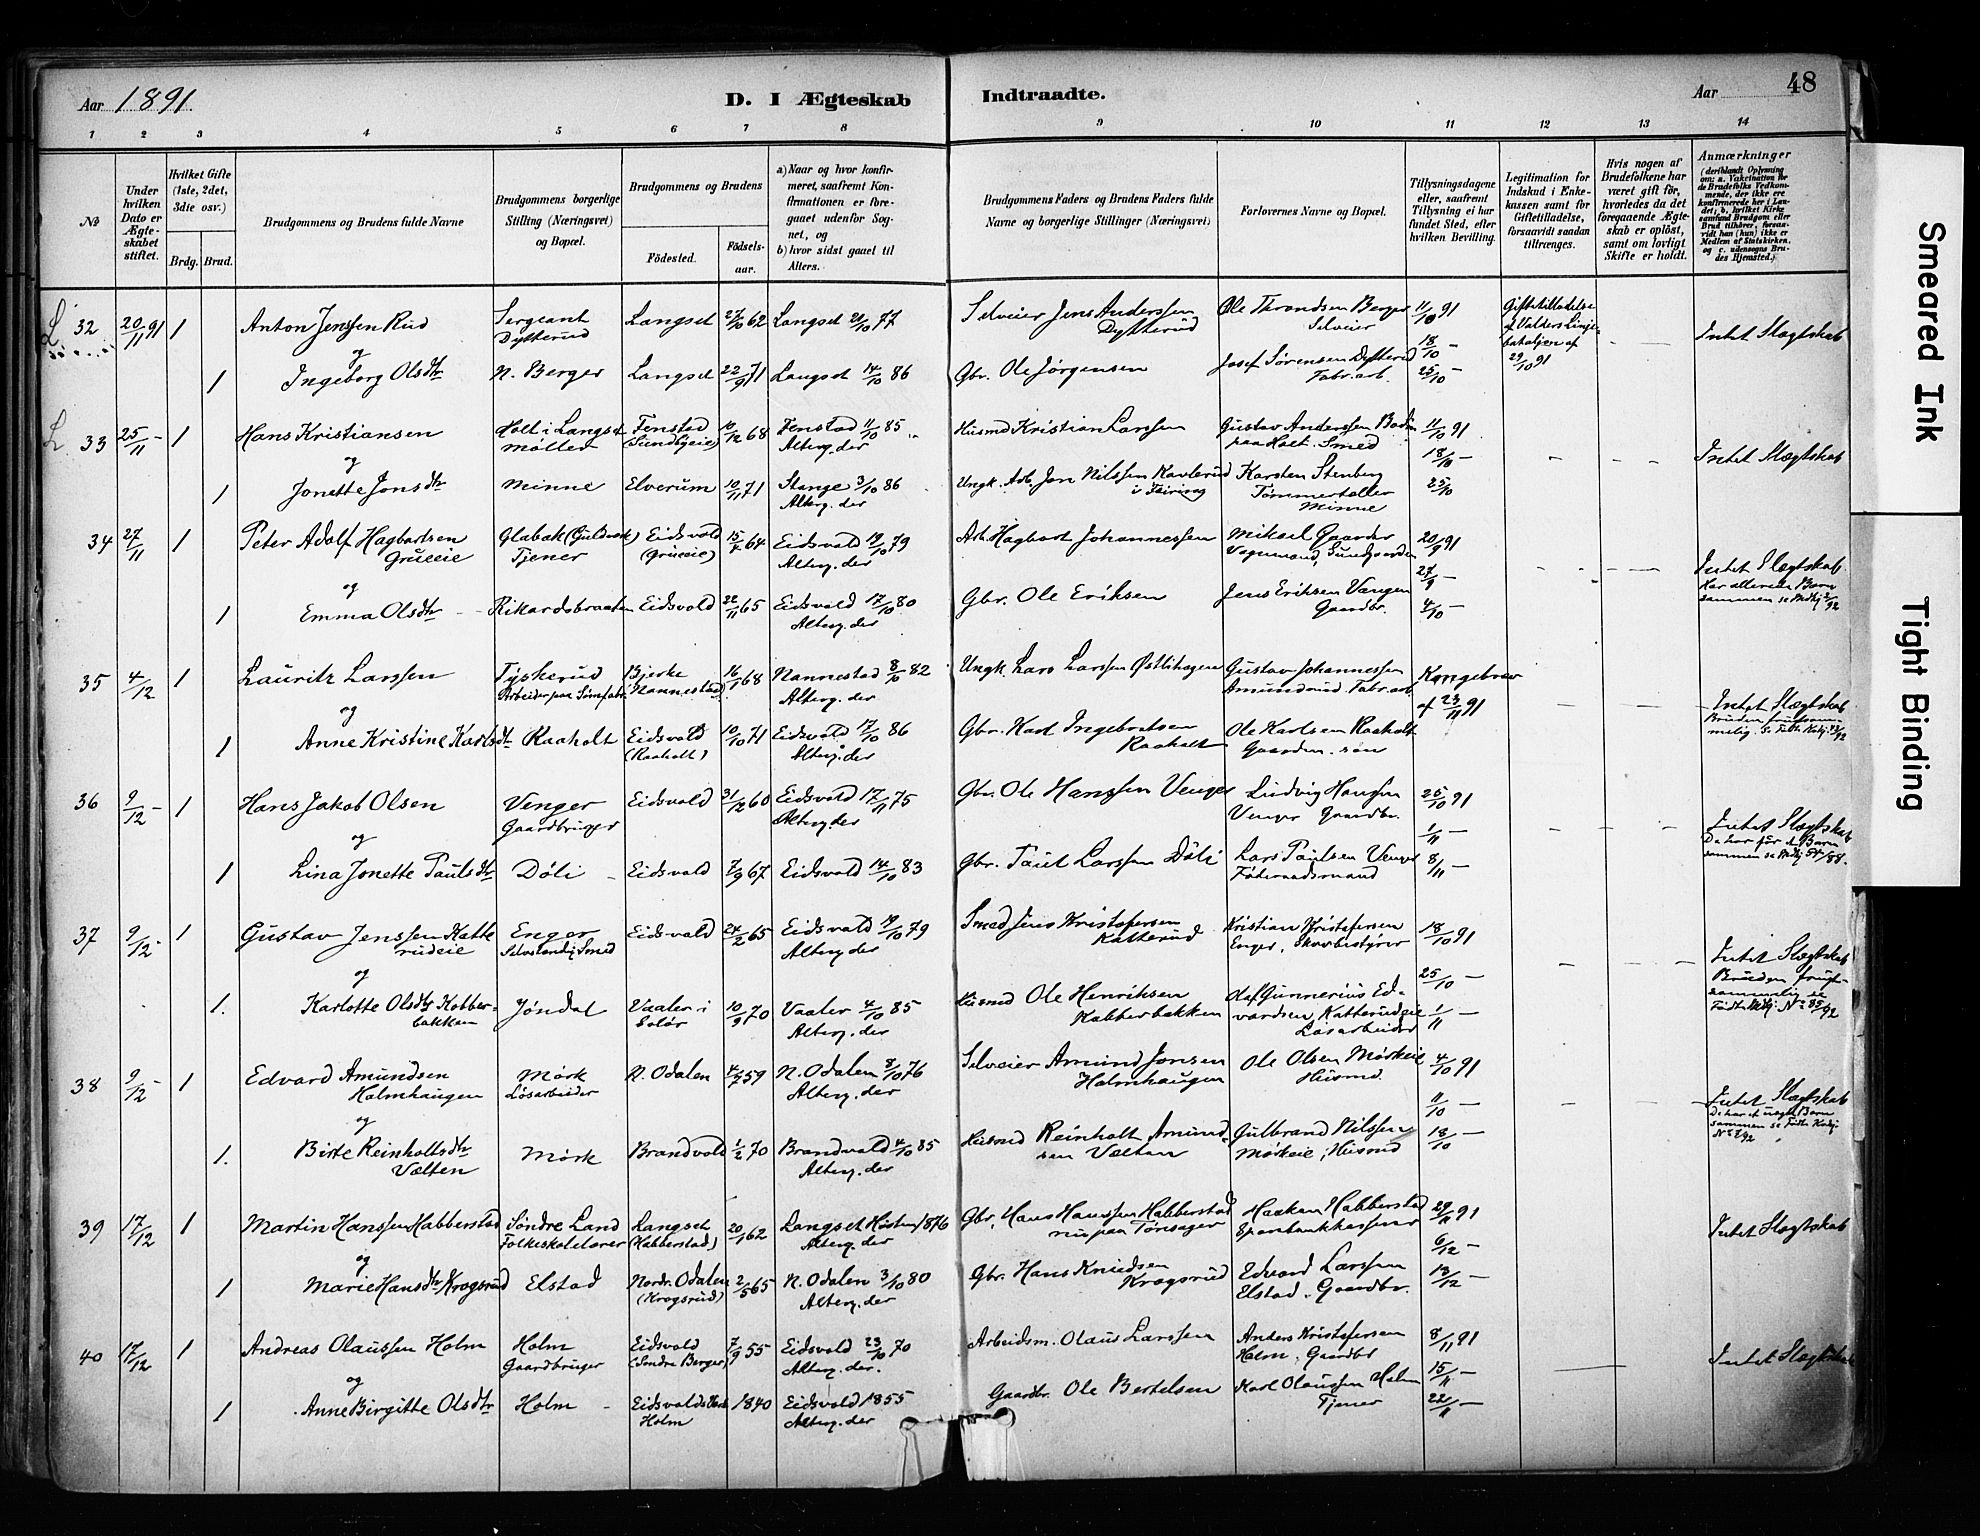 Aar 1891.
D. I Ægteskab Indtraadte.
Aar 48
1 2 3 4 5 6 7 8 9 10 11 12 13 14
№
Under hvilken Dato er Ægteskabet stiftet.
Hvilket Gifte (1ste, 2det, 3die osv.)
Brdg. Brud.
Brudgommens og Brudens fulde Navne
Brudgommens borgerlige Stilling (Næringsvei) og Bopæl.
Brudgommens og Brudens
Födested. Födselsaar.
a) Naar og hvor konfirmeret, saafremt Konfirmationen er foregaaet udenfor Sognet, og
b) hvor sidst gaaet til Alters.
Brudgommens Faders og Brudens Faders fulde Navne og borgerlige Stillinger (Næringsvei)
Forlovernes Navne og Bopæl.
Tillysningsdagene eller, saafremt Tillysning ei har fundet Sted, efter hvilken Bevilling.
Legitimation for Indskud i Enkekassen samt for Giftetilladelse, forsaavidt saadan tiltrænges.
Hvis nogen af Brudefolkene har været gift för, hvorledes da det foregaaende Ægteskab er oplöst, samt om lovligt Skifte er holdt.
Anmærkninger
(deriblandt Oplysning om: a. Vakcination for de Brudefolks Vedkommende, der ikke ere konfirmerede her i Landet; b. hvilket Kirkesamfund Brudgom eller Brud tilhörer, forsaavidt han (hun) ikke er Medlem af Statskirken, og c. udensogns Brudes Hjemsted.)
L. 32 20/11 91 1 Anton Jenssen Rud Sergeant Dytterud Langset 27/10 62 Langset 21/10 77 Selveier Jens Anderssen Dytterud Ole Throndsen Berger Selveier 11/10 91 Giftetilladelse af Valders Linjebataljon af 29/10 91 Intet Slægtskab
og
1 Ingeborg Olsdtr N. Berger Langset 22/9 71 Langset 14/10 86 Gbr. Ole Jørgensen Josef Sørensen Dytterud Fabr. arb. 18/10 — 25/10 —
L 33 25/11 - 1 Hans Kristiansen Holt i Langset møller Fenstad (Sundbyeie) 10/12 68 Fenstad 11/10 85 Alterg. der Husmd Kristian Larssen Gustav Anderssen paa Holt. Smed 11/10 91 Intet Slægtskab
og
1 Jonette Jonsdtr Minne Elverum 10/11 71 Stange 3/10 86 Alterg. der Ungk. Arb. Jon Nilssen i Feiring Karsten Stenberg Tømmertæller Minne 18/10 — 25/10
34 27/11 1 Peter Adolf Hagbartsen Grueeie Glabak (Guldverk) Tjener Eidsvold (Grueeie) 15/4 64 Eidsvold 19/10 79 Alterg. der Arb. Hagbart Johannessen Mikael Gaarder Vognmand, Sundgaarden 20/9 91 Intet Slægtskab. Har allerede Barn sammen
og
1 Emma Olsdtr Rikardsbraaten Eidsvold 22/11 65 Eidsvold 17/10 80 Alterg. der Gbr. Ole Eriksen Jens Eriksen Vangen Gaardbr. 27/9 — 4/10 —
35 4/12 1 Lauritz Larssen Tyskerud Arbeider paa Bjerke i Nannestad 16/1 68 Nannestad 8/10 82 Alterg. der Ungk. Lars Larssen Østlihagen Gustav Johannessen Amundrud. Fabr. arb. Kongebrev af 23/11 91 Intet Slægtskab Bruden frugtsommelig.
og
1 Anne Kristine Karlsdtr Raaholt Eidsvold (Raaholt) 10/10 71 Eidsvold 17/10 86 Alterg. der Gbr. Karl Ingebretsen Raaholt Ole Karlsen Raaholt Gaardm. søn
36 9/12 - 1 Hans Jakob Olsen Venger Gaardbruger Eidsvold 31/12 60 Eidsvold 17/11 75 Alterg. der Gbr. Ole Hanssen Venger Ludvig Hansen Venger Gaardbr. 25/10 91 Intet Slægtskab De har før et Barn sammen
og
1 Lina Jonette Paulsdtr Døli Eidsvold 7/9 67 Eidsvold 14/10 83 Gbr. Paul Larssen Døli Lars Paulsen Venger Føderaadsmand 1/11 — 8/11 —
37 9/12 - 1 Gustav Jenssen Katterudeie Enger Selvstændig Smed Eidsvold 24/2 65 Eidsvold 19/10 79 Alterg. der Smed Jens Kristofersen Katterud Kristian Kristofersen Enger, Skovbestyrer 18/10 91 Intet Slægtskab Bruden frugtsommelig
og
1. Karlotte Olsdtr Kobberbakken Jøndal Vaaler i Solør 10/9 70 Vaaler 4/10 85 Alterg. der Husmd Ole Henriksen Kobberbakken Olaf Gunnerius Edvardsen Katterudeie Løsarbeider 25/10 — 1/11 —
38 9/12 - 1 Edvard Amundsen Holmhaugen Mørk Løsarbeider N. Odalen 4/7 59 N. Odalen 8/10 76 Alterg. der Selveier Amund Jonsen Holmhaugen Ole Olsen Mørkeie Husmd. 4/10 91 Intet Slægtskab De har et uægte Barn sammen
og
1. Birte Reinholtsdtr Vælten Mørk Brandvold 1/2 70 Brandvold 4/10 85 Alterg. der Husmd Reinholt Amundsen Vælten Gulbrand Nilssen Mørkeie, Husmd 11/10 — 18/10 —
39 17/12 1 Martin Hanssen Habberstad Søndre Land Folkeskolelærer Langset (Habberstad) 20/1 62 Langset Høsten 1876 Alterg. der Gbr. Hans Hanssen Habberstad nu paa Tønsager Haaken Habberstad Sparebankkasserer 29/11 91 Intet Slægtskab
og
1 Marie Hansdtr Krogsrud Elstad Nordr. Odalen (Krogsrud) 2/5 65 N. Odalen 3/10 80 Alterg. der Gbr. Hans Knudsen Krogsrud Edvard Larssen Elstad. Gaardbr. 6/12 — 13/12 —
40 17/12 1 Andreas Olaussen Holm Holm Gaardbruger Eidsvold (Søndre Berger) 7/9 55 Eidsvold 23/10 70 Alterg. der. Arbeidsm. Olaus Larssen Anders Kristofersen Holm, Gaardbr 8/11 91 Intet Slægtskab
og
1 Anne Birgitte Olsdtr Holm Eidsvolds Holm 1840 Eidsvold 1855 Alterg. der Gaardbr. Ole Bertelsen Karl Olaussen Holm Tjener 15/11 — 22/11 —
Smeared Ink
Tight Binding